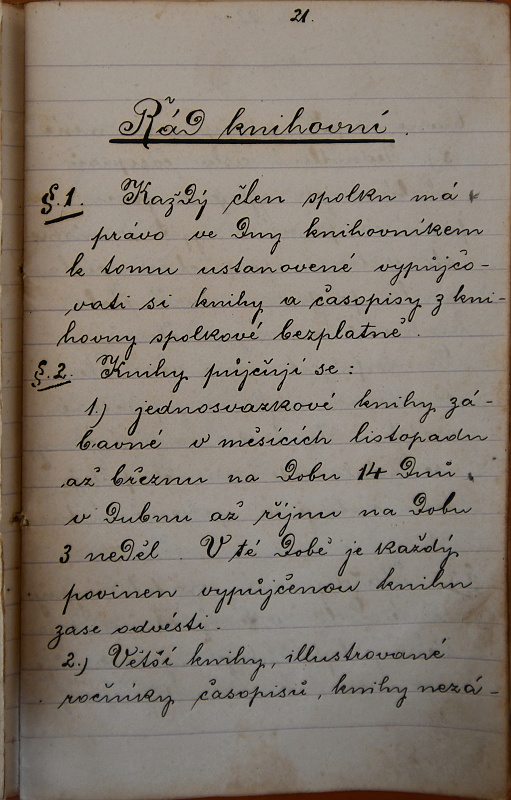 21.
Řád knihovní.
§.1. Každý člen spolku má
právo ve dny knihovníkem
k tomu ustanovené vypůjčo-
vati si knihy a časopisy z kni-
hovny spolkové bezplatně.
§.2. Knihy půjčují se:
1.) jednosvazkové knihy zá-
bavné v měsících listopadu
až březnu na dobu 14 dnů,
v dubnu až říjnu na dobu
3 neděl. V té době je každý
povinen vypůjčenou knihu
zase odvésti.
2.) Větší knihy, illustrované
ročníky časopisů, knihy nezá-